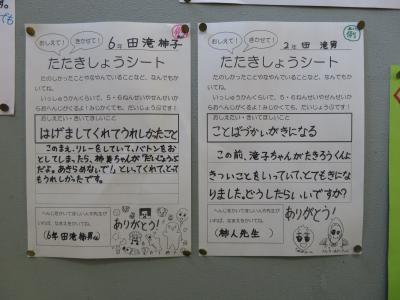 おしえて！ きかせて！
6年 田滝 柿子
たたきしょうシート
たのしかったことやなやんでいることなど、なんでもかいてね。
いっしゅうかんくらいで、5・6ねんせいやせんせいからおへんじがくるよ！みじかくても、だいじょうぶです！
おしえたい・きいてほしいこと
はげましてくれてうれしかたこと
このまえ、リレーをしていて、バトンをお
としてしまったら、柿男ちゃんが「だいじょうぶ
だよ。あきらめないで！」といってくれて、とって
もうれしかったです。
へんじをかいてほしい人や先生が
いれば、なまえをかいてね。
(6年 田滝柿男さん)
ありがとう！
おしえて！ きかせて！
2年 田 滝男
たたきしょうシート
たのしかったことやなやんでいることなど、なんでもかいてね。
いっしゅうかんくらいで、5・6ねんせいやせんせいからおへんじがくるよ！みじかくても、だいじょうぶです！
おしえたい・きいてほしいこと
ことばづかいがきになる
この前、滝子ちゃんがたきろうくんに
きついことをいっていて、とてもきにな
りました。どうしたらいいですか？
へんじをかいてほしい人や先生が
いれば、なまえをかいてね。
(柿人先生)
ありがとう！